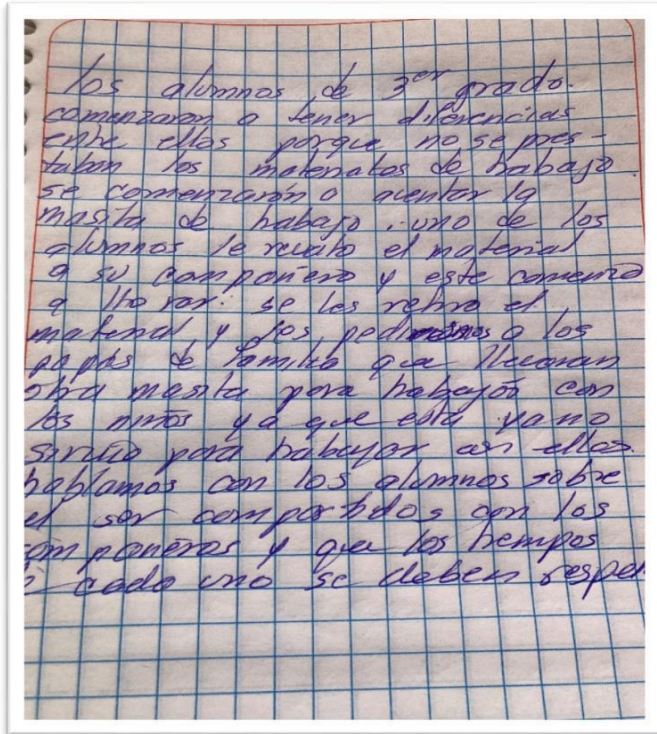 los alumnos de 3er grado.
comenzaron a tener diferencias
entre ellos porque no se pres-
taban los materiales de trabajo.
se comenzarón a aventar la
masita de trabajo. uno de los
alumnos le revato el material
a su compañero y este comenzo
a llorar. se les retiro el
material y les pedimos a los
papás de familia que llevaran
otra masita para trabajar con
los niños ya que esta ya no
sirvio para trabajar con ellos.
hablamos con los alumnos sobre
el ser compartidos con los
ompañeros y que los tiempos
cada uno se deben respe